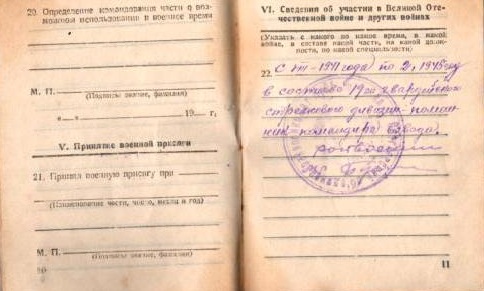 20. Определение командования части о воз-
можном использовании в военное время
М. П.
(Подпись, звание, фамилия)
«—» 19 г.
V. Принятие военной присяги
21. Принял военную присягу при
(Наименование части, число, месяц и год)
М. П.
(Подпись, звание, фамилия)
10
VI. Сведения об участии в Великой Оте-
чественной войне и других войнах
(Указать с какого по какое время, в какой
войне, в составе какой части, на какой долж-
ности, по какой специальности)
22. С III-1941 года по 2, 1943 году
в составе 19ой гвардейской
стрелковой дивизии помощ-
ник командира взвода
11